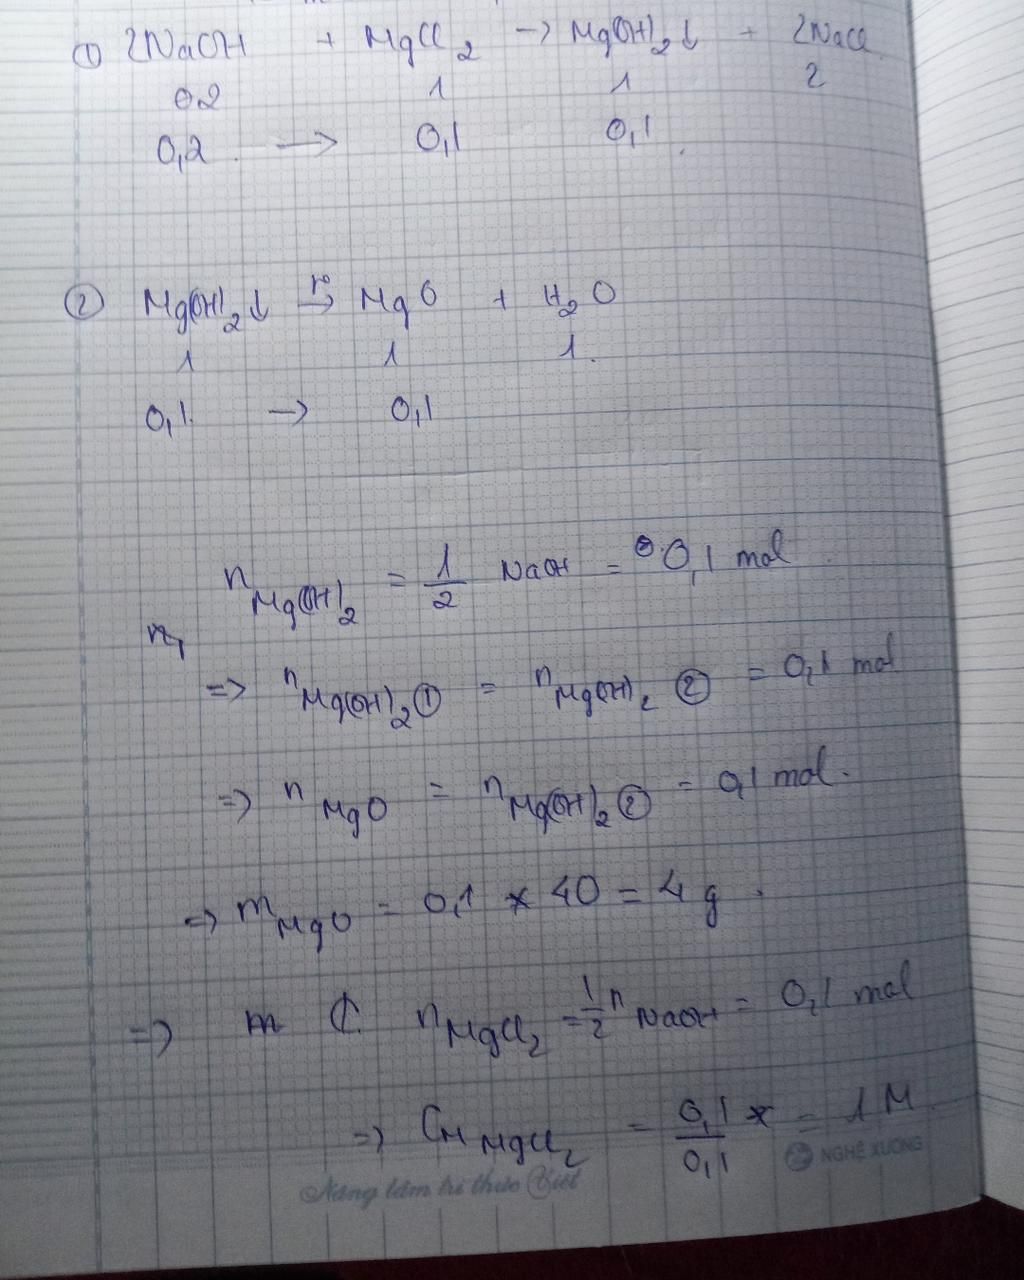 ① 2NaOH + MgCl2 -> Mg(OH)2↓ + 2NaCl
0.2 1 1 2
0,2 -> 0,1 0,1
② Mg(OH)2↓ t° -> MgO + H2O
1 1 1.
0,1 -> 0,1
nMg(OH)2 = 1/2 NaOH = 0,1 mol
=> nMg(OH)2① = nMg(OH)2② = 0,1 mol
=> nMgO = nMg(OH)2② = 0,1 mol.
=> mMgO = 0,1 * 40 = 4g.
=> m nMgCl2 = 1/2 nNaOH = 0,1 mol
=> CM MgCl2 = 0,1/0,1 = 1M
Nâng tầm tri thức Việt NGHÉ XUONG